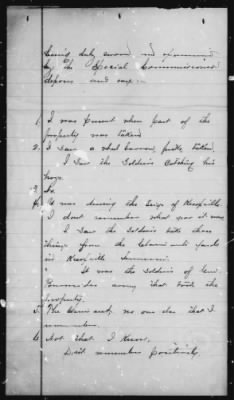 being duly sworn and examined
by the Special Commissioner
deposes and says:-
1. I was present when part of the
property was taken
2. I saw a wheel barrow, taken.
I saw the Soldiers catching his
hogs.
3. No.
4. It was during the Seige of Knoxville.
I dont remember what year it was
I saw the Soldiers take these
things from the Claimants yards
in Knoxville Tennessee.
" It was the Soldiers of Gen.
army that took the
property.
5. The Claimant, no one else that I
remember.
6. Not that I know,
Dont remember positively.